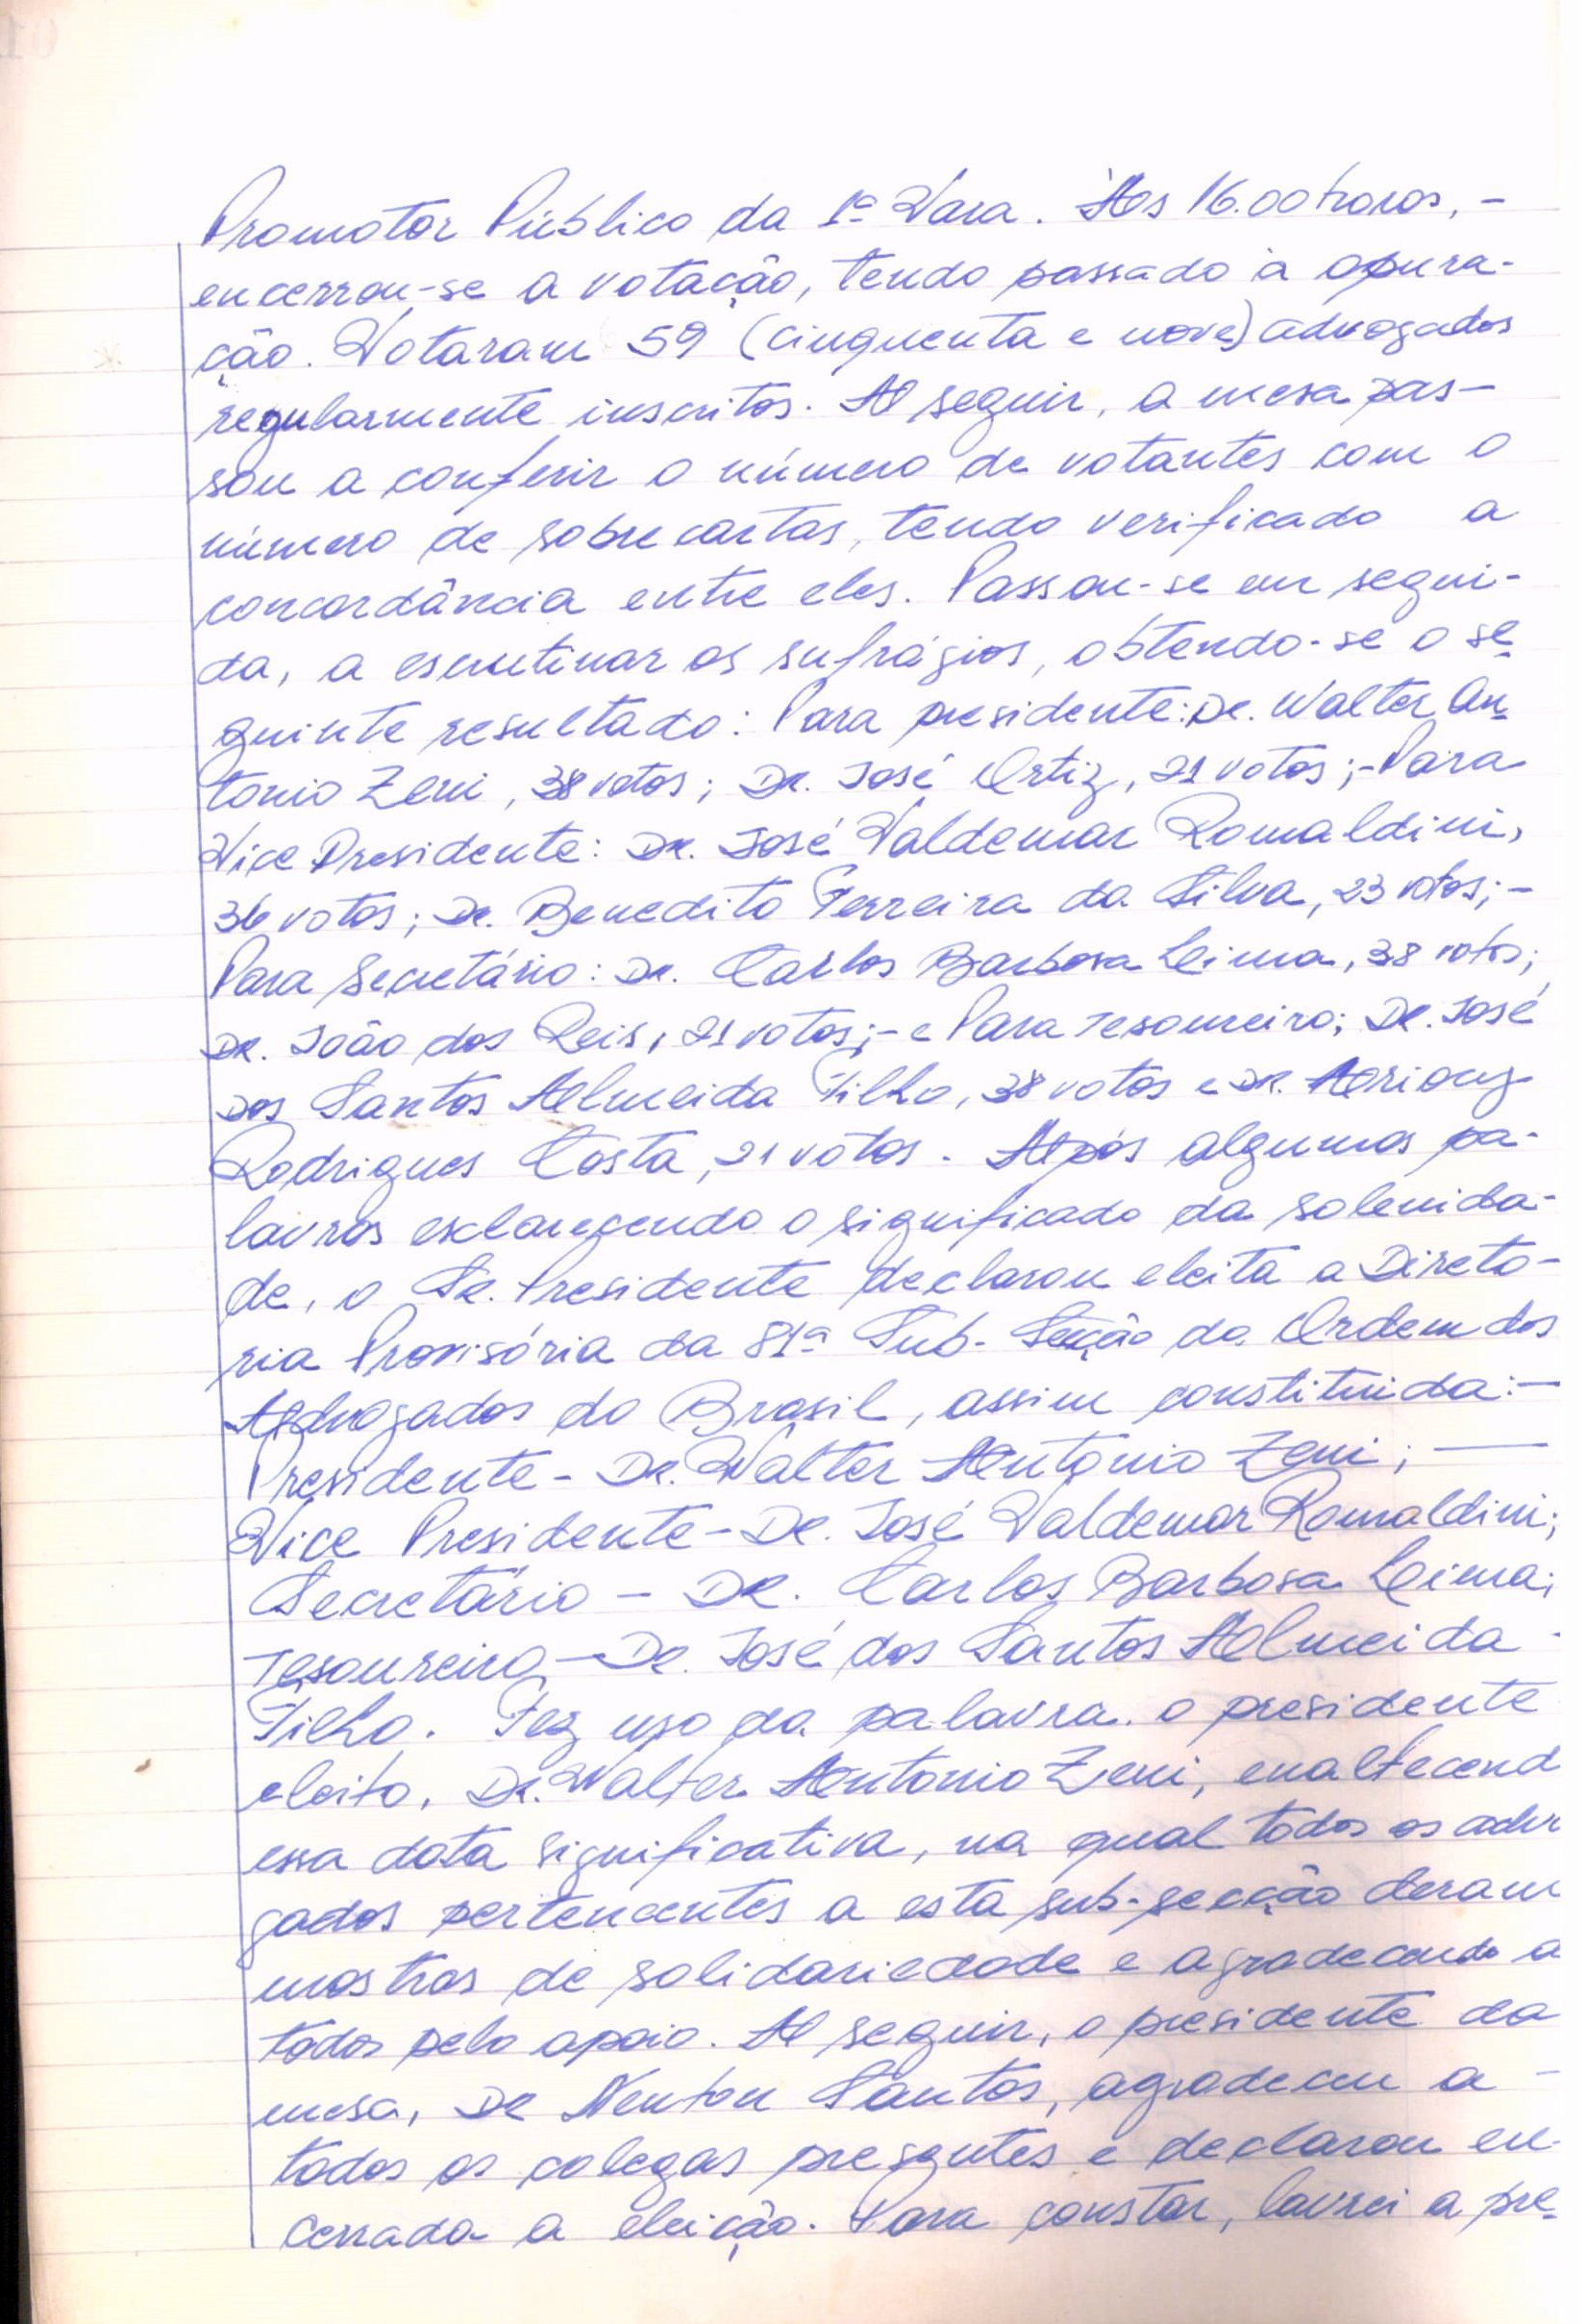 Promotor Público da 1ª Vara. Às 16.00 horas, -
encerrou-se a votação, tendo passado à apura-
ção. Votaram 59 (cinquenta e nove) advogados
regularmente inscritos. A seguir, a mesa pas-
sou a conferir o número de votantes com o
número de sobrecartas, tendo verificado a
concordância entre eles. Passou-se em segui-
da, a escrutinar os sufrágios, obtendo-se o se-
guinte resultado: Para presidente: Dr. Walter An-
tonio Zeni, 38 votos; Dr. José Ortiz, 21 votos;- Para
Vice Presidente: Dr. José Valdemar Romaldini,
36 votos; Dr. Benedito Ferreira da Silva, 23 votos;-
Para Secretário: Dr. Carlos Barbosa Leima, 38 votos;
Dr. João dos Reis, 21 votos;- e Para Tesoureiro; Dr. José
dos Santos Almeida Filho, 38 votos e Dr.
Rodrigues Costa, 21 votos. Após algumas pa-
lavras esclarecendo o significado da solenida-
de, o Sr. Presidente declarou eleita a Direto-
ria Provisória da 81ª Sub-Seção da Ordem dos
Advogados do Brasil, assim constituida:-
Presidente - Dr. Walter Antonio Zeni; -
Vice Presidente - Dr. José Valdemar Romaldini;
Secretário - Dr. Carlos Barbosa Leima;
Tesoureiro - Dr. José dos Santos Almeida -
Filho. Fez uso da palavra o presidente
eleito, Dr. Walter Antonio Zeni, enaltecend
essa data significativa, na qual todos os adv
gados pertencentes a esta sub-secção deram
mostras de solidariedade e agradecendo a
todos pelo apoio. A seguir, o presidente da
mesa, Dr Newton Santos, agradeceu a -
todos os colegas presentes e declarou en-
cerrada a eleição. Para constar, lavrei a pre-